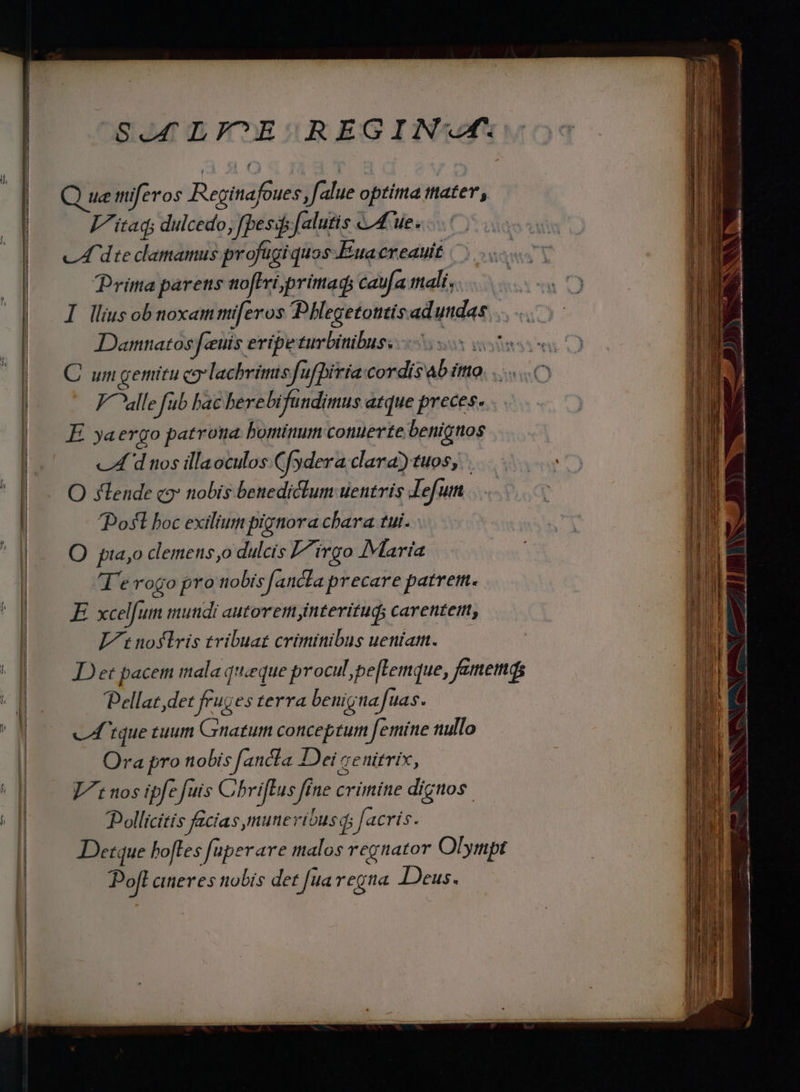 SALVE REGINA.
Quæ miſeros Regina foues, ſalue optima mater,
Vitaq; dulcedo, ſpesq; ſalutis Aue.
Ad te clamamus profugi quos Eua creauit
Prima parens noſtri, primaq; cauſa mali,
Illius ob noxam miſeros Phlegetontis ad undas
Damnatos ſæuis eripe turbinibus.
Cum gemitu & lachrimis ſuſpiria cordis ab imo
Valle ſub hac herebi fundimus atque preces.
Eya ergo patrona hominum conuerte benignos
Ad nos illa oculos (ſydera clara) tuos,
Oſtende & nobis benedictum uentris Ieſum
Poſt hoc exilium pignora chara tui.
O pia, o clemens, o dulcis Virgo Maria
Te rogo pro nobis ſancta precare patrem.
Excelſum mundi autorem, interituq; carentem,
Vt noſtris tribuat criminibus ueniam.
Det pacem mala quæque procul, peſtemque, famemq;
Pellat, det fruges terra benigna ſuas.
Atque tuum Gnatum conceptum ſemine nullo
Ora pro nobis ſancta Dei genitrix,
Vt nos ipſe ſuis Chriſtus ſine crimine dignos
Pollicitis facias, muneribusq; ſacris.
Detque hoſtes ſuperare malos regnator Olympi
Poſt cineres nobis det ſua regna Deus.